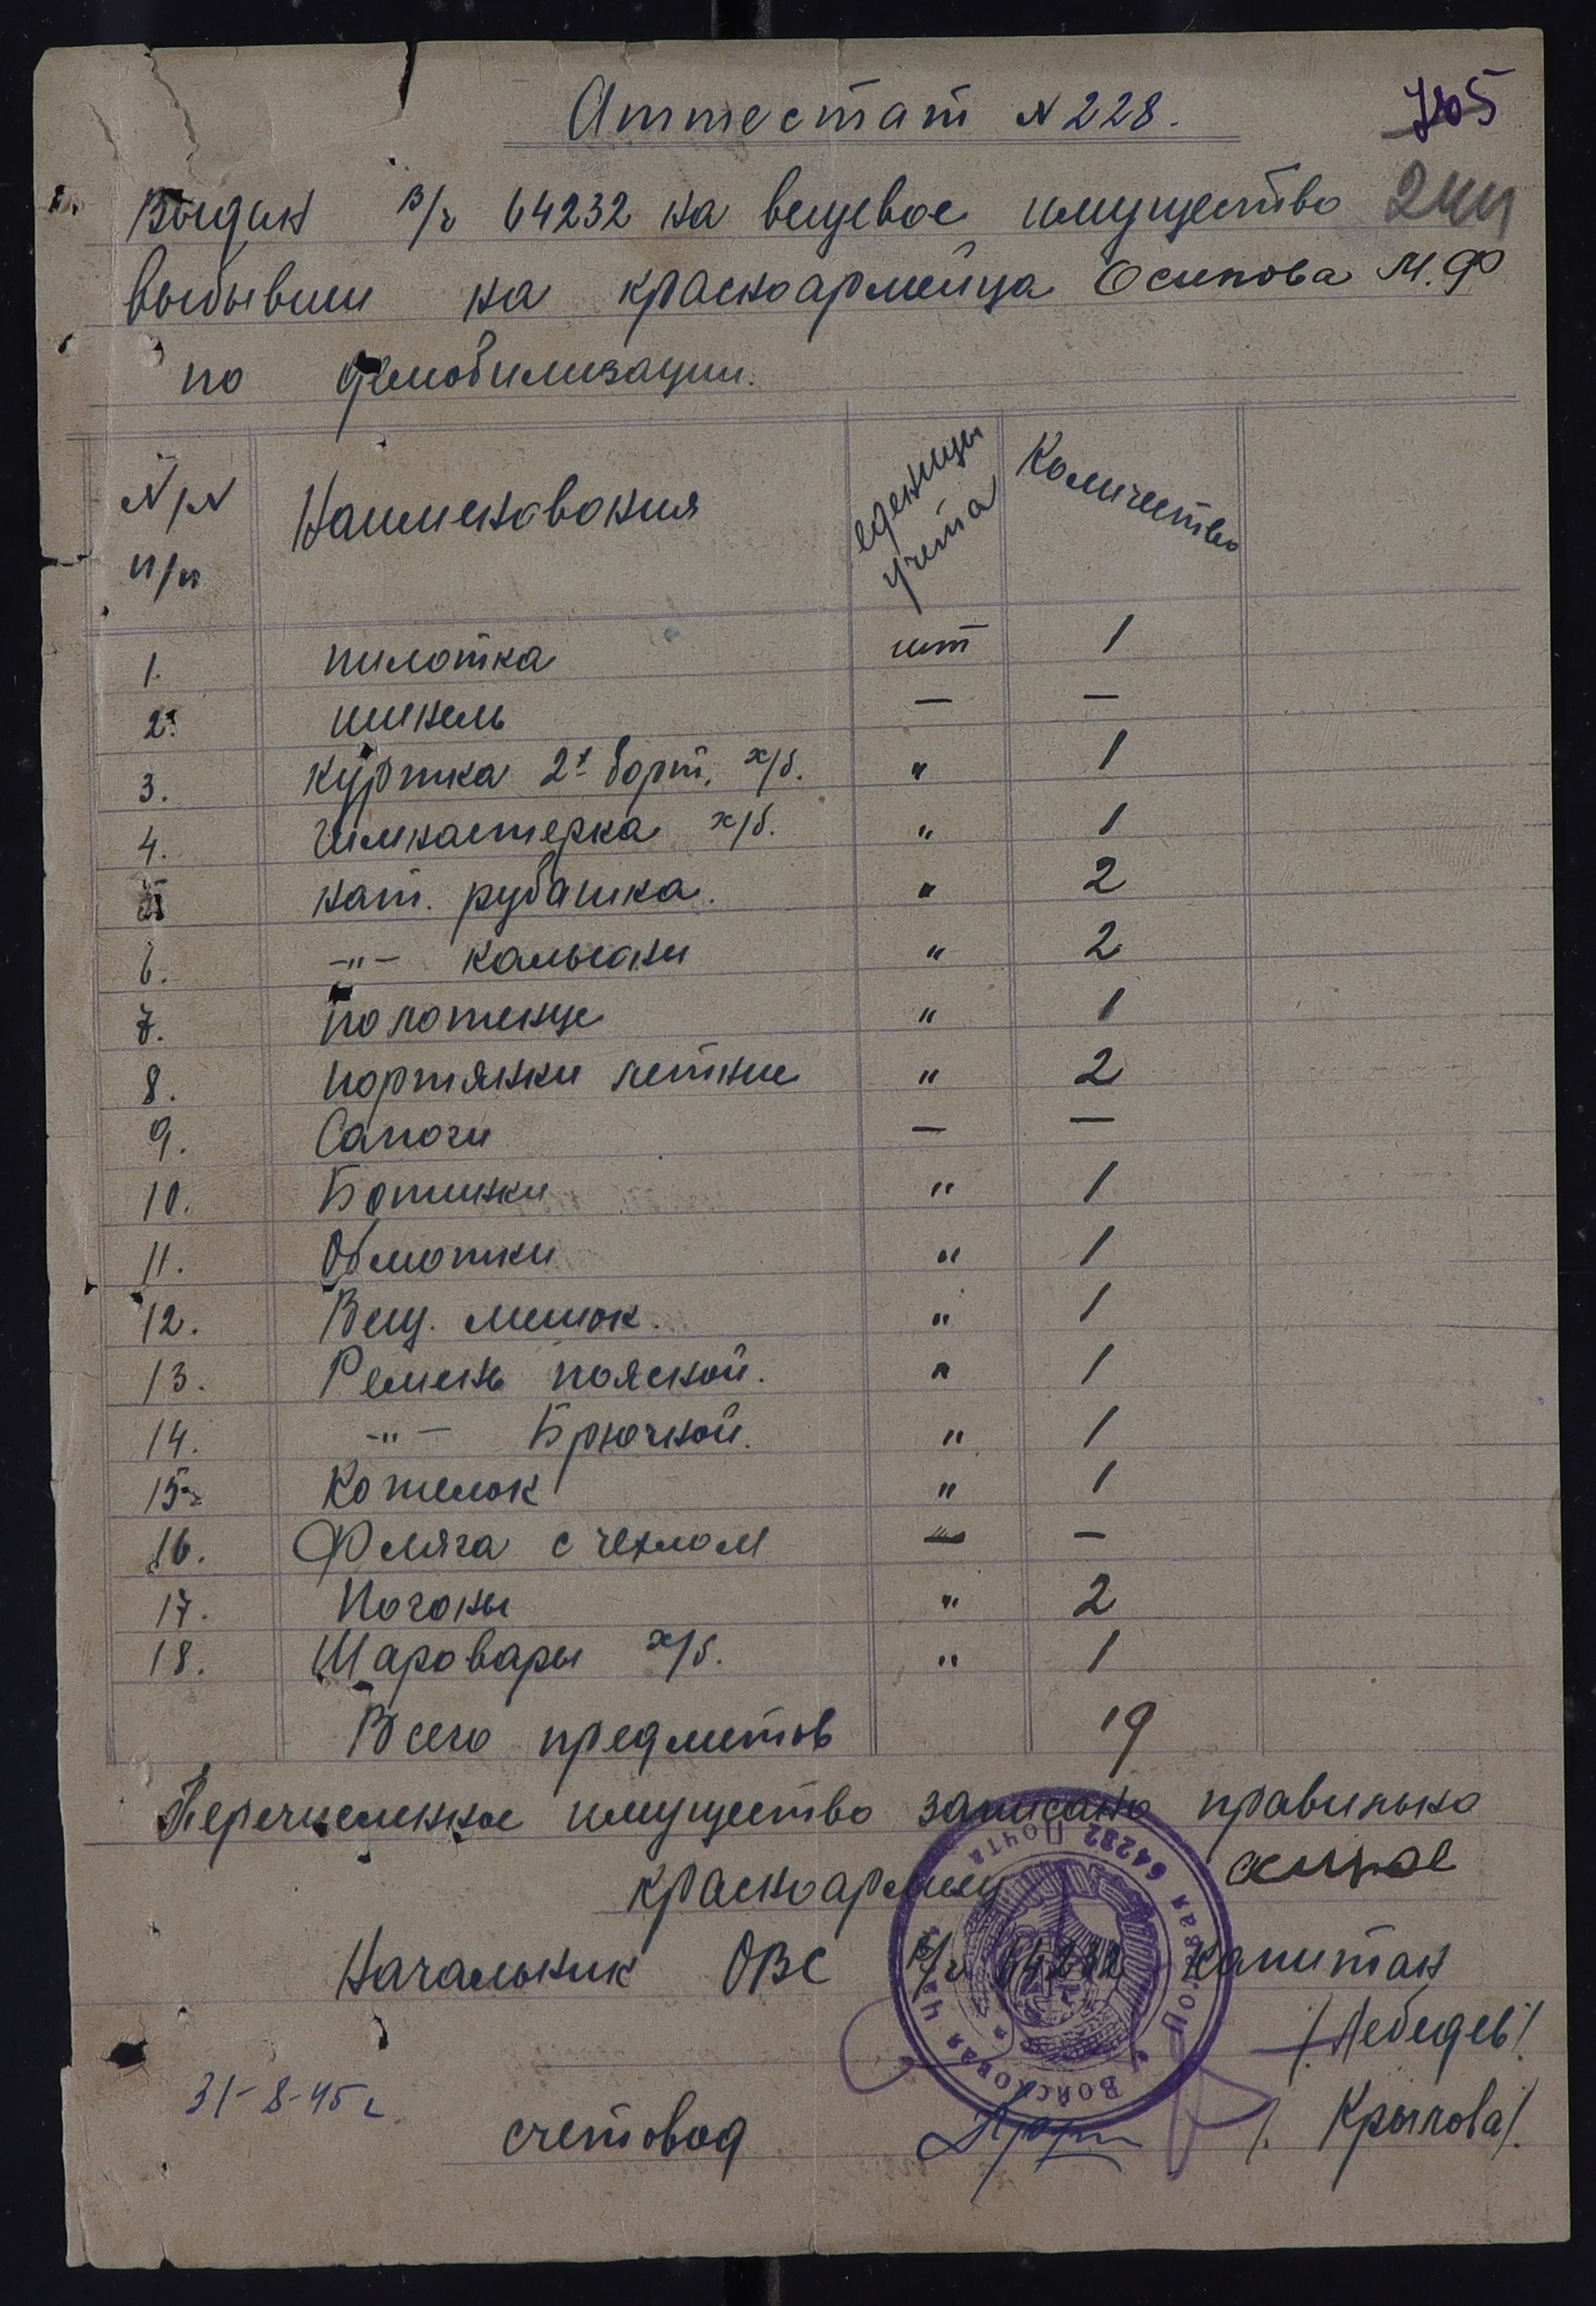 Аттестат N 228.
705
Выдан в/ч 64232 на вещевое имущество
выбывши на красноармейца Осипова М.Ф
по демобилизации.
N/N п/п Наименования еденицы учета Количество
1. пилотка шт 1
2. шинель — —
3. Куртка 2х борт. х/б. " 1
4. Гимнастерка х/б. " 1
5 нат. рубашка. " 2
6. -"- кальсоны " 2
7. Полотенце " 1
8. портянки летние " 2
9. Сапоги — —
10. Ботинки " 1
11. Обмотки " 1
12. Вещ. мешок. " 1
13. Ремень поясной. " 1
14. -"- Брючной. " 1
15. Котелок " 1
16. Фляга с чехлом — —
17. Погоны " 2
18. Шаровары х/б. " 1
Всего предметов 19
Перечисленное имущество записано правильно
красноармеец
Начальник ОВС в/ч 64232 капитан
/Лебедев/
31-8-45 г.
счетовод /. Крылова/.
Войсковая часть Полевая Почта 64232